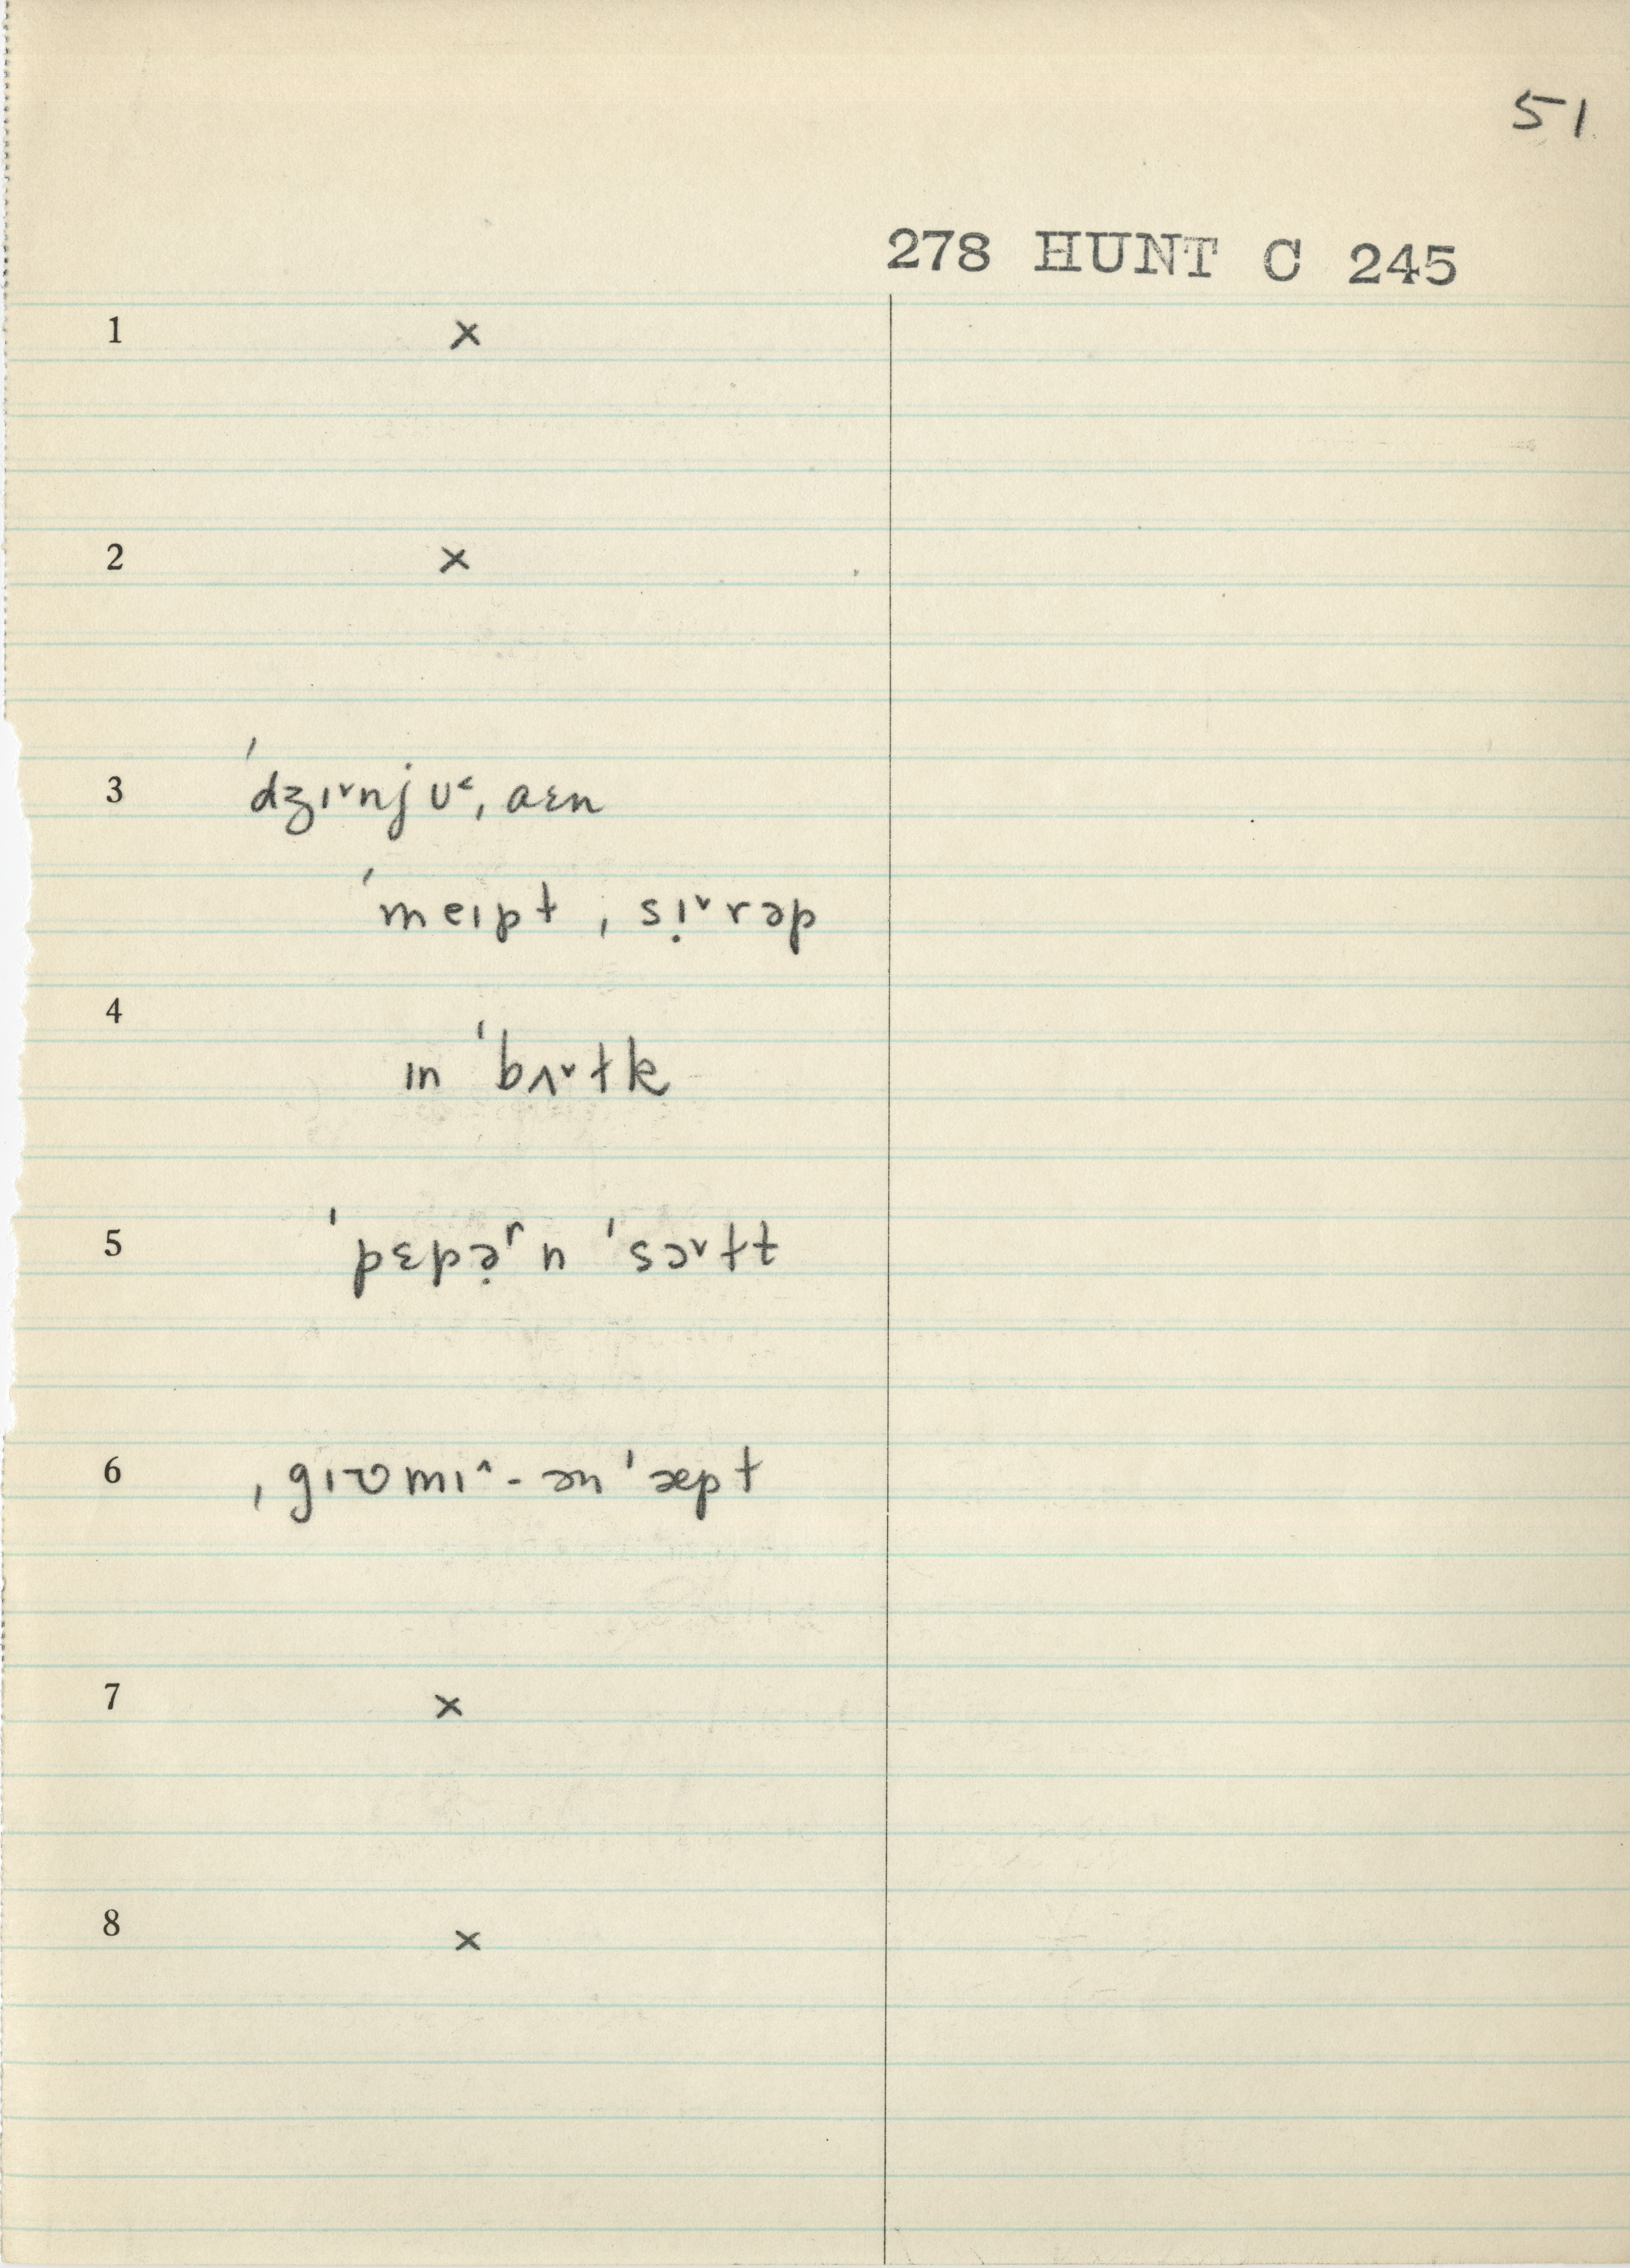 51
278 HUNT C 245
1 ×
2 ×
3 ˈdʒɪ˅njʊ˂ˌaɛn
ˈmeɪpt ˌsi̙˅rəp
4 ɪn ˈbʌ˅tk
5 ˈpɛpə̣ʳn ˈsɔ˅tt
6 ˌgɪʊmɪ^-ən ˈæpt
7 ×
8 ×